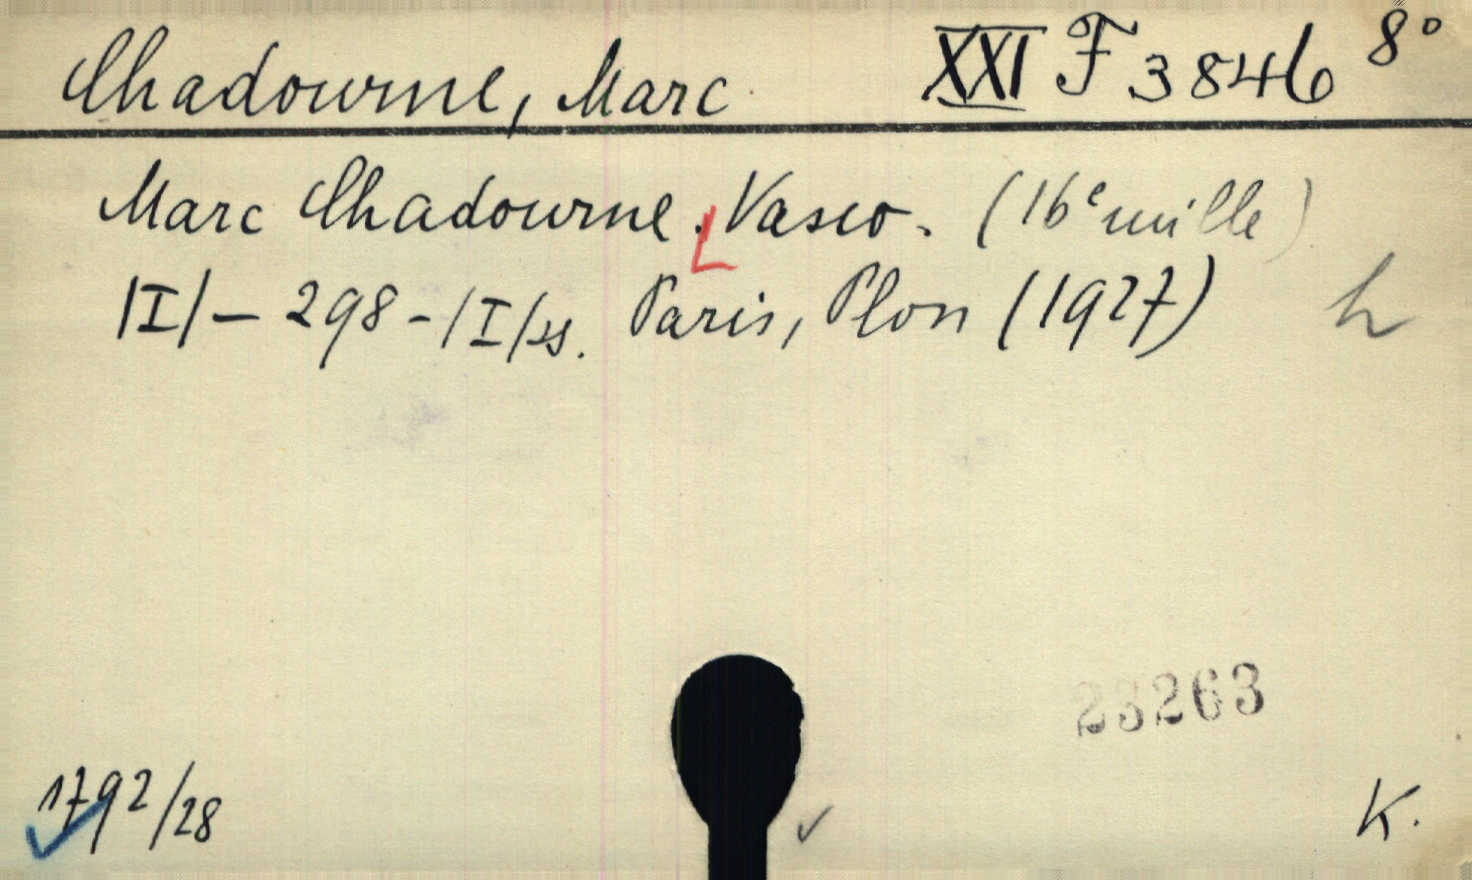 Chadourne, Marc XXI F 3846 8°
Marc Chadourne. Vasco. (16e mille)
|I|- 298 -|I|ss. Paris, Plon (1927) h
23263
1792/28
K.